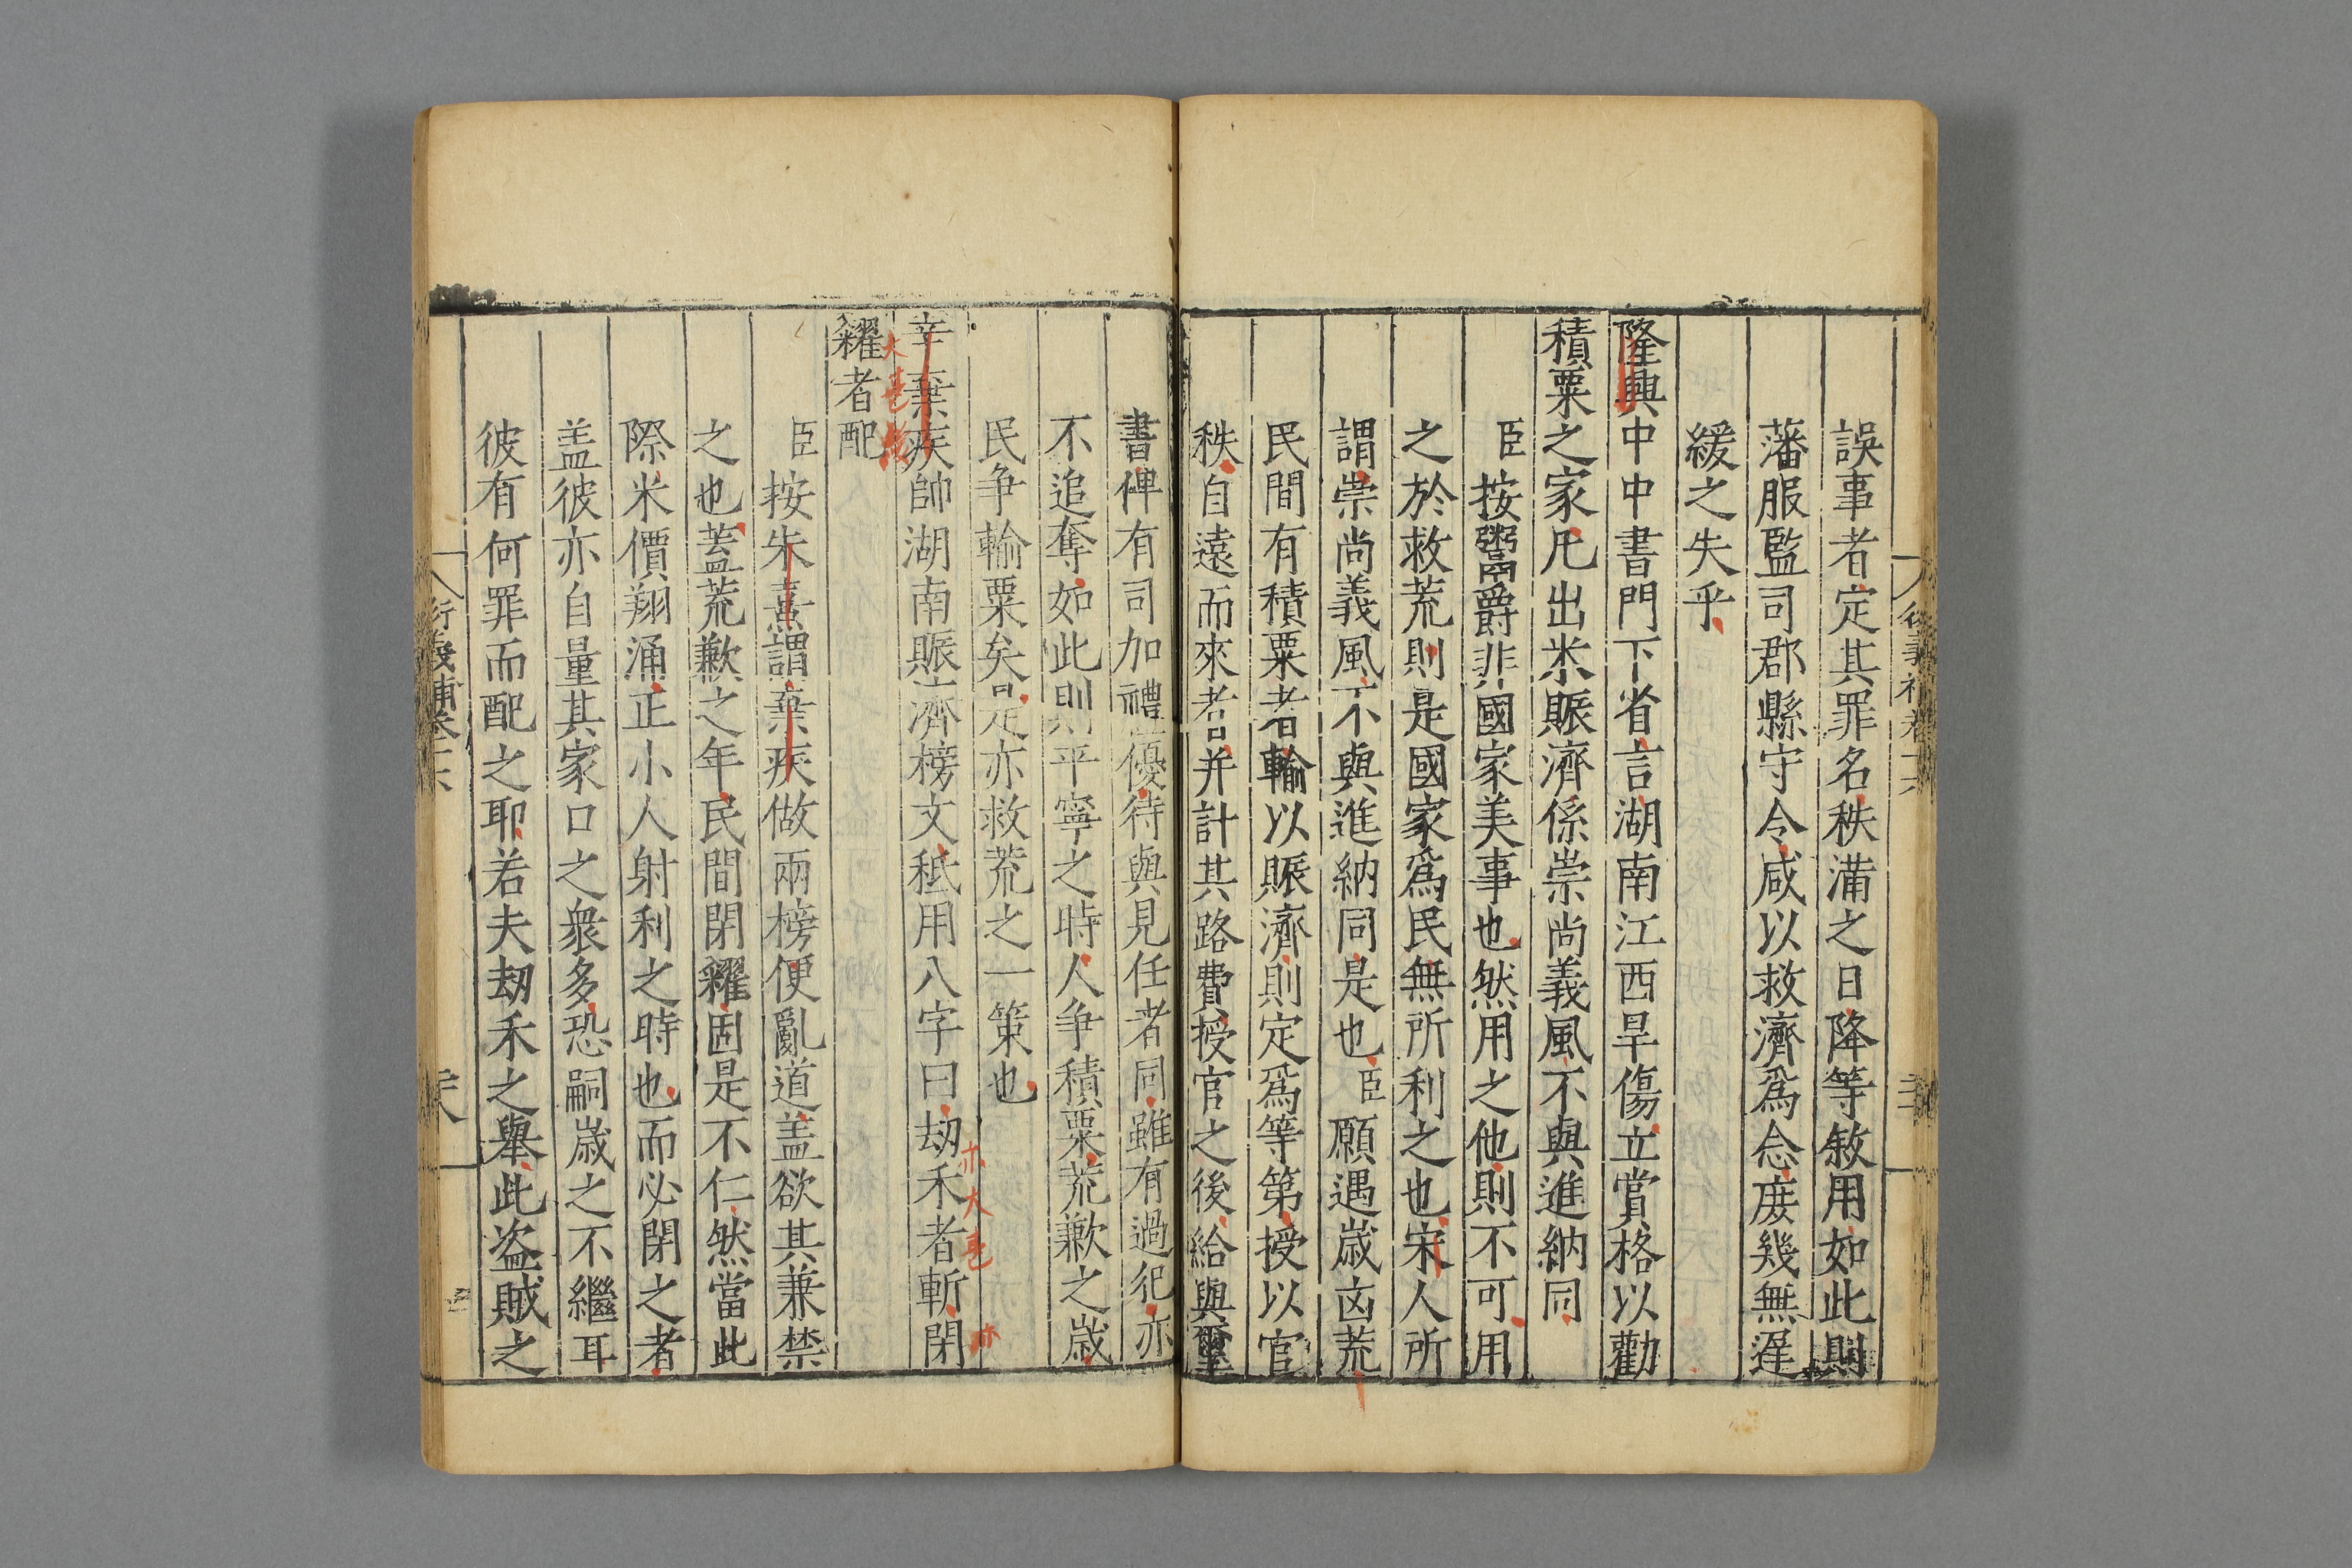 誤事者定其罪名秩滿之日降等敘用如此則
藩服監司郡縣守令咸以救濟爲念庻幾無遲
緩之失乎
隆興中中書門下省言湖南江西旱傷立賞格以勸
積粟之家凡出米賑濟係崇尚義風不與進納同
臣按鬻爵非國家美事也然用之他則不可用
之於救荒則是國家爲民無所利之也宋人所
謂崇尚義風不與進納同是也臣願遇歲凶荒
民間有積粟者輸以賑濟則定爲等第授以官
秩自遠而來者并計其路費授官之後給與璽
書俾有司加禮優待與見任者同雖有過犯亦
不追奪如此則平寧之時人争積粟荒歉之歲
民争輸粟矣是亦救荒之一策也
辛棄疾帥湖南賑濟榜文秪用八字曰劫禾者斬閉
糴者配
臣按朱熹謂棄疾做兩榜便亂道盖欲其兼禁
之也蓋荒歉之年民間閉糴固是不仁然當此
際米價翔涌正小人射利之時也而必閉之者
盖彼亦自量其家口之衆多恐嗣歲之不繼耳
彼有何罪而配之耶若夫劫禾之舉此盗賊之
衍義補卷十六